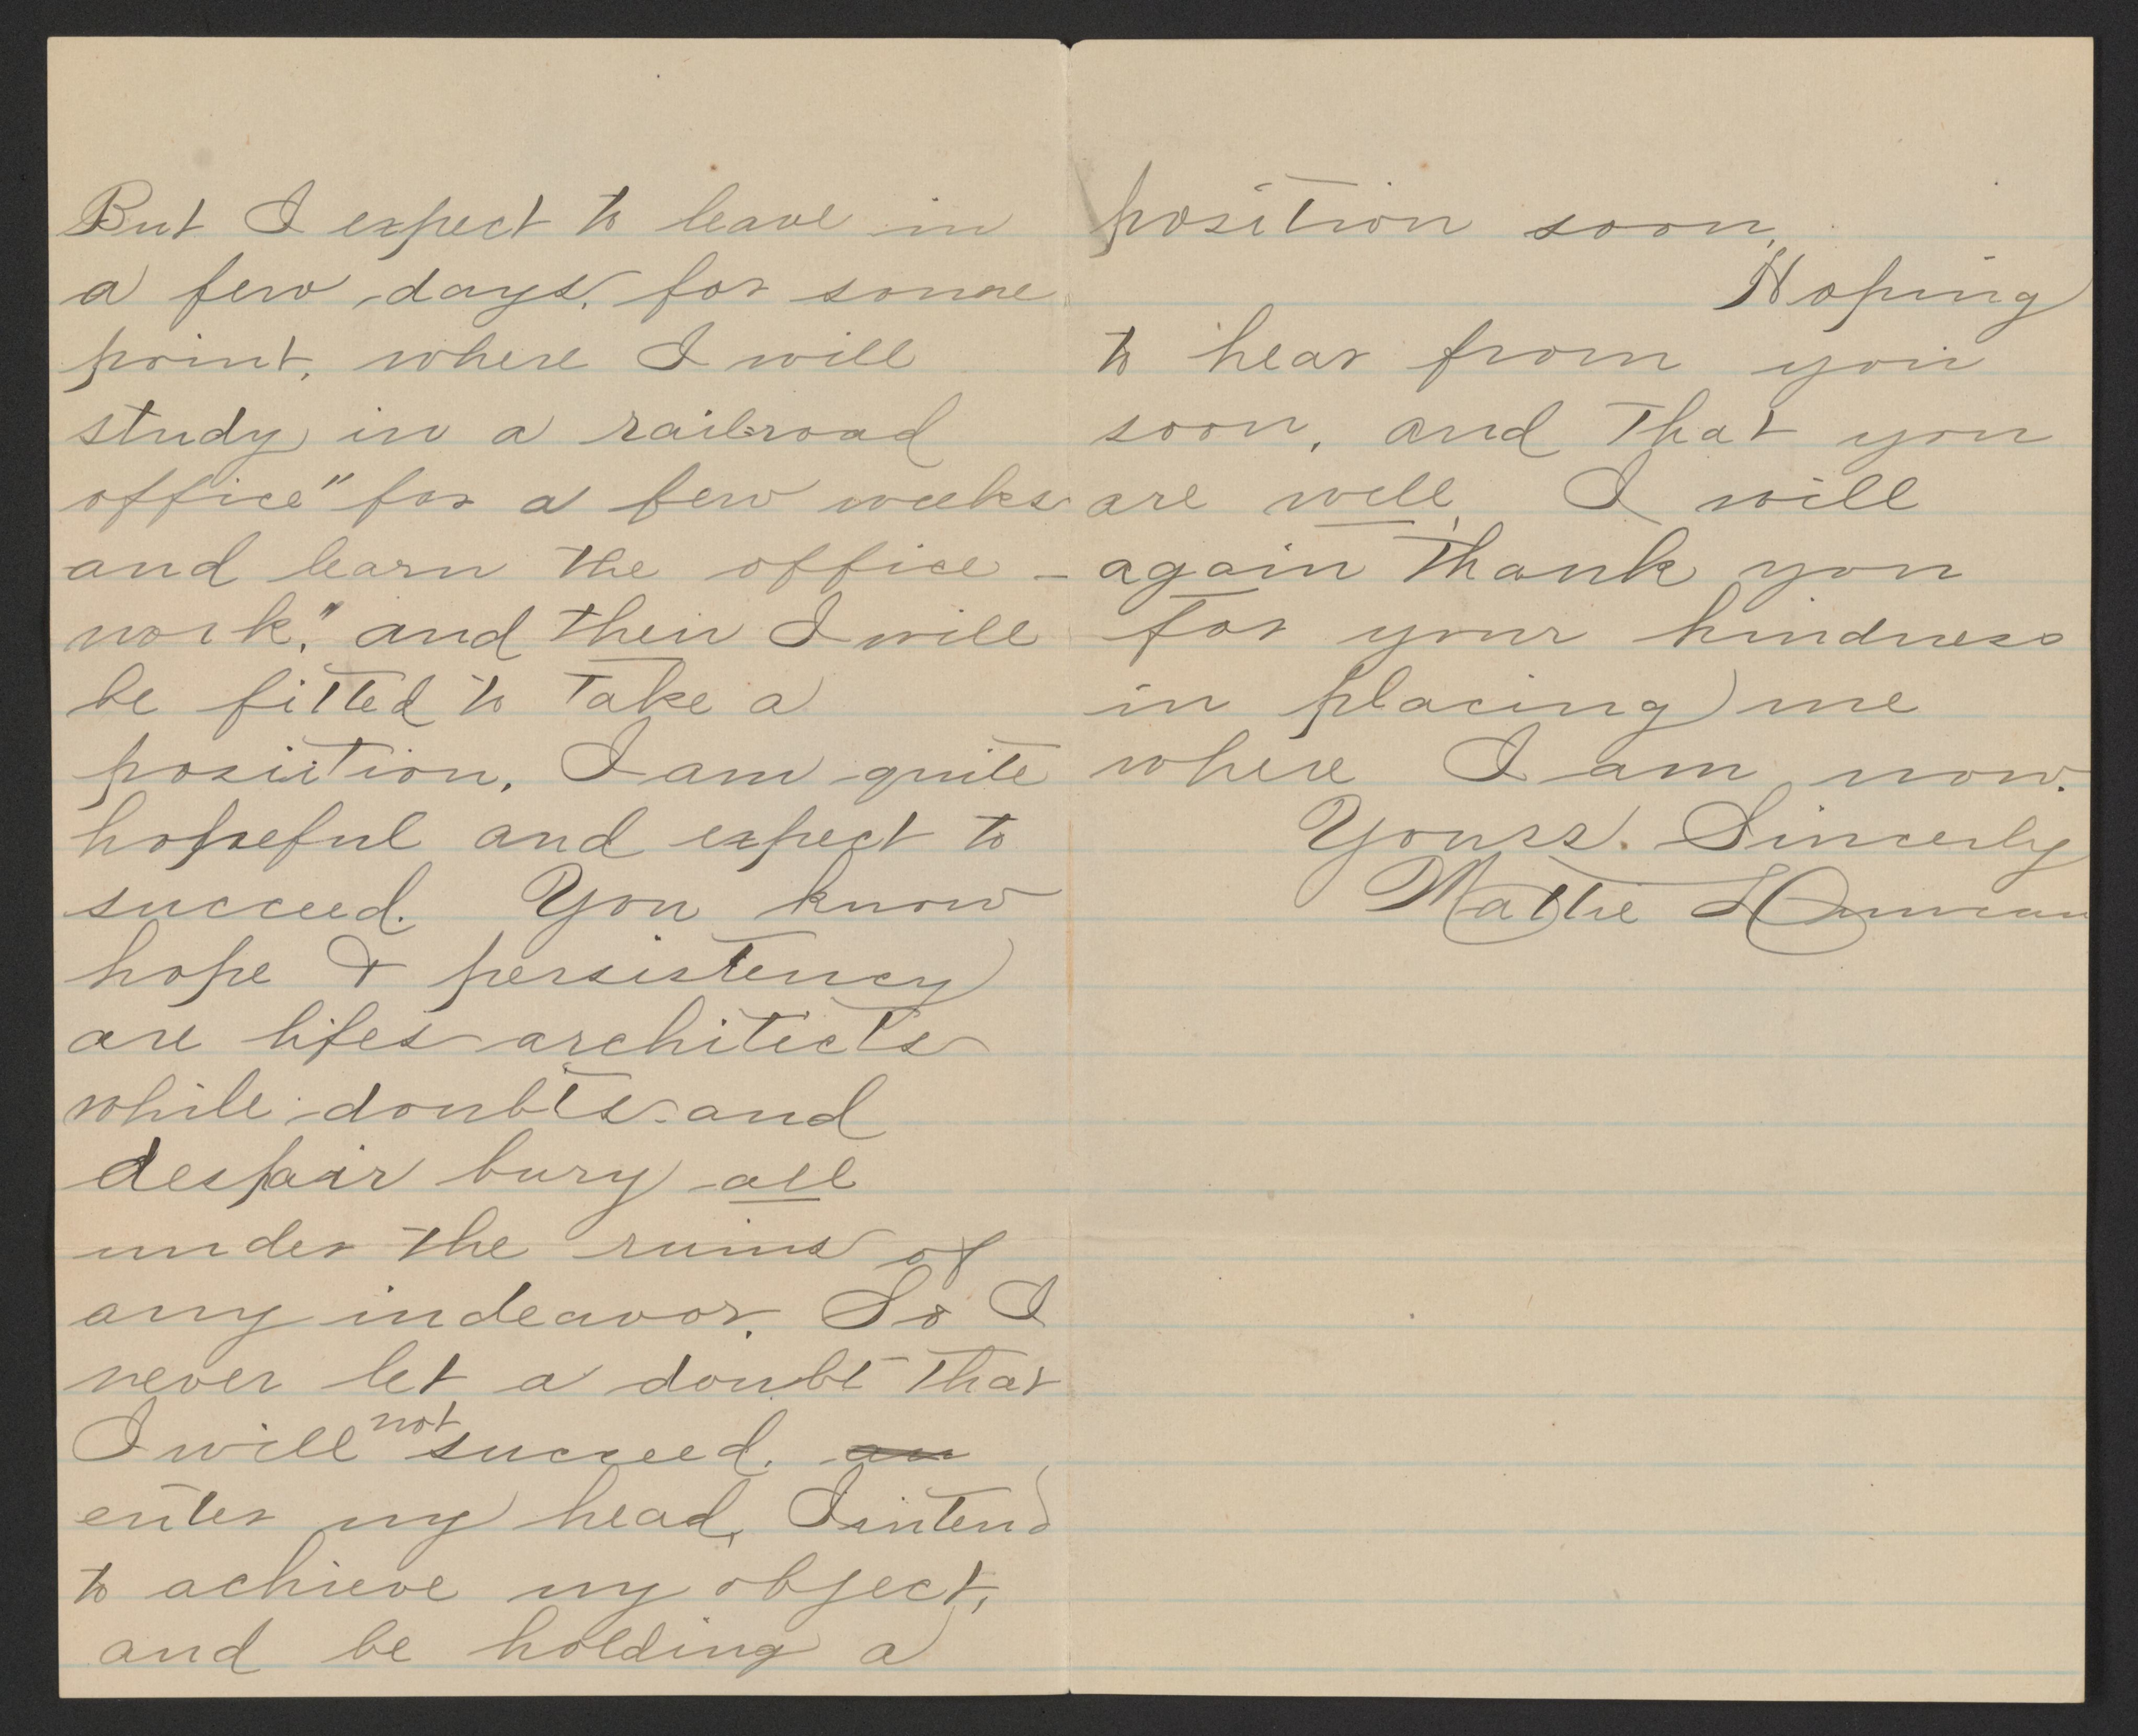 But I expect to leave in
a few days, for some
point, where I will
study in a railroad
office" for a few weeks
and learn the office -
work," and then I will
be fitted to take a
position. I am quite
hopeful and expect to
succeed. You know
hope & persistency
are lifes architects
while doubts and
despair bury all
under the ruins of
any indeavor. So I
never let a doubt that
I will not succeed. an
enter my head, I intend
to achieve my object,
and be holding a
position soon,
Hoping
to hear from you
soon, and that you
are well, I will
again thank you
for your kindness
in placing me
where I am now.
Yours. Sincerly
Mattie